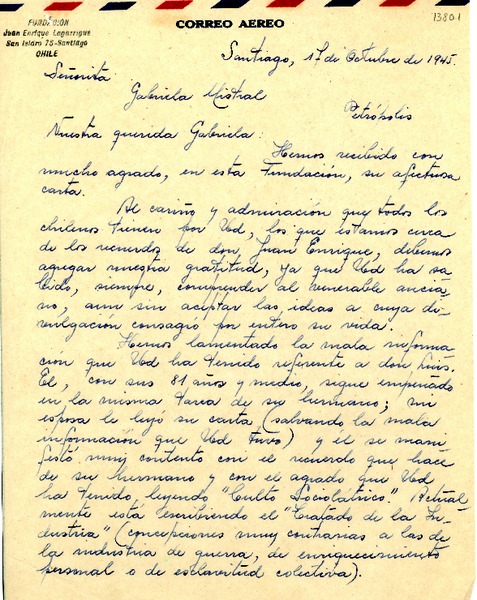 CORREO AEREO
13801
FUNDACION
Juan Enrique Lagarrigue
San Isidro 75-Santiago
CHILE
Santiago, 17 de Octubre de 1945
Señorita
Gabriela Mistral
Petrópolis
Nuestra querida Gabriela:
Hemos recibido con
mucho agrado, en esta Fundación, su afectuosa
carta.
Al cariño y admiración que todos los
chilenos tienen por Ud, los que estamos cerca
de los recuerdos de don Juan Enrique, debemos
agregar nuestra gratitud, ya que Ud ha sa
bido, siempre, comprender al venerable ancia
no, aun sin aceptar las ideas a cuya di-
vulgación consagró por entero su vida.
Hemos lamentado la mala inform
ación que Ud ha tenido referente a don Luis.
El, con sus 81 años y medio, sigue empeñado
en la misma tarea de su hermano; mi
esposa le leyó su carta (salvando la mala
información que Ud tuvo) y él se mani
festó muy contento con el recuerdo que hace
de su hermano y con el agrado que Ud
ha tenido, leyendo "Culto Sociolátrico." Actual
mente está escribiendo el "Tratado de la In-
dustria" (concepciones muy contrarias a las de
la industria de guerra, de enriquecimiento
personal o de esclavitud colectiva).